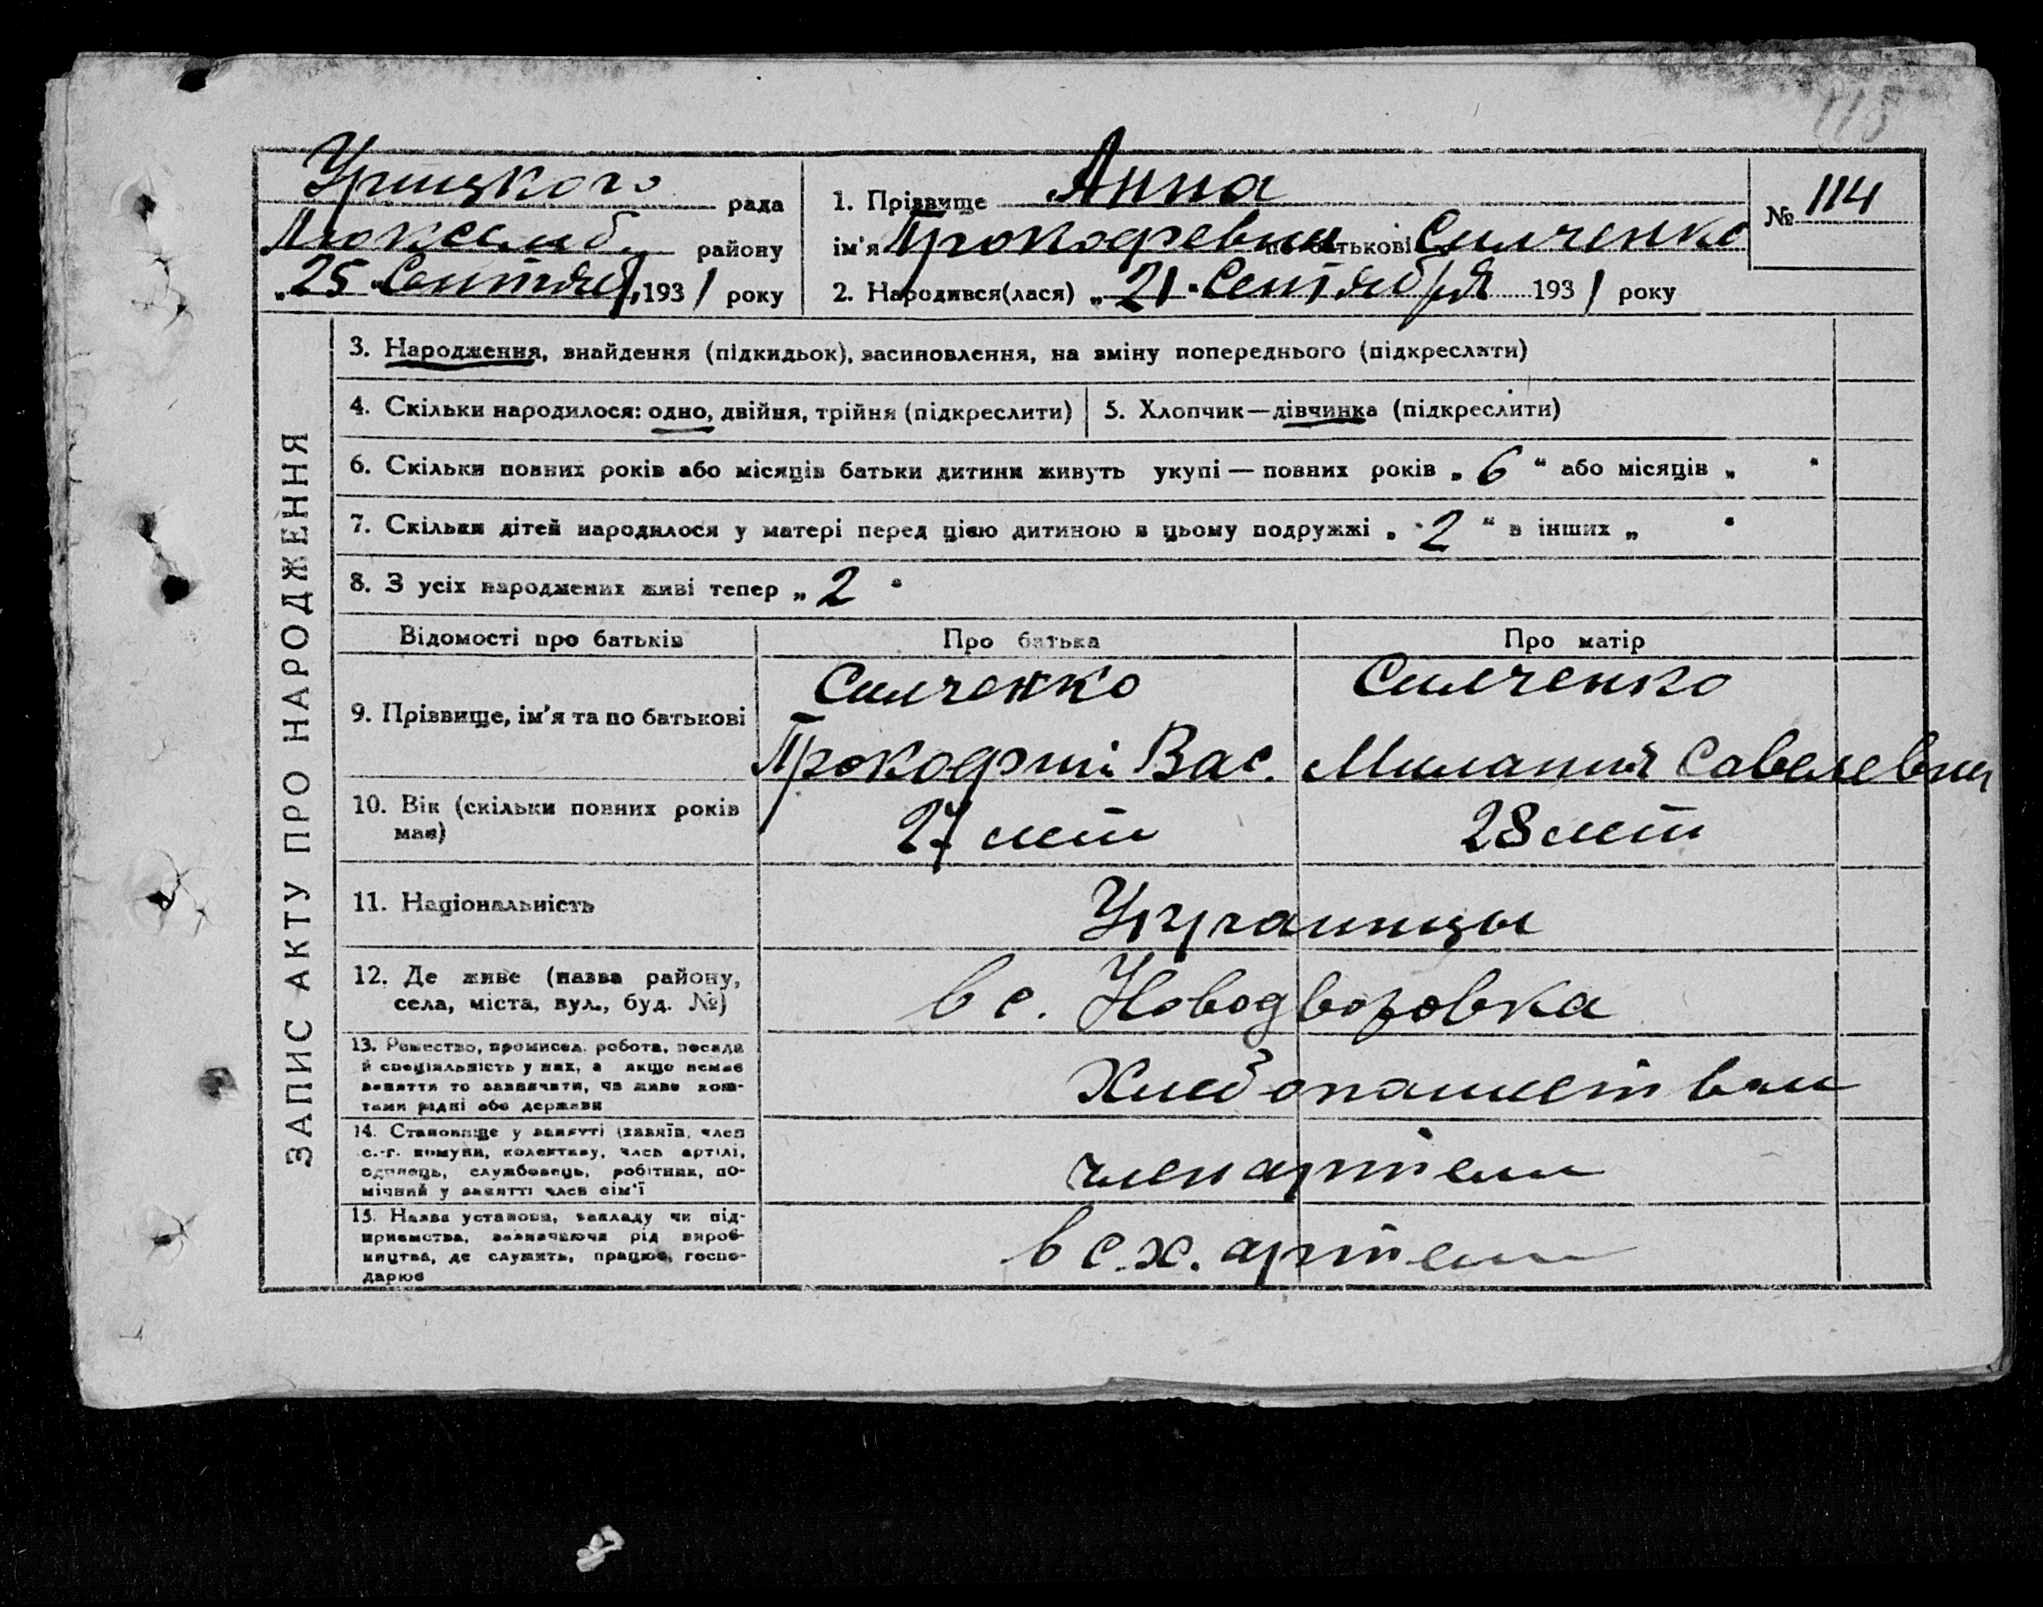 115
Урицкого рада
Люксемб. району
„25 "Сентябр, 1931 року
1. Прізвище Анна
ім'я Прокофевна по батькові Силченко
2. Народився(лася) „21" Сентября 1931 року
№ 114
ЗАПИС АКТУ ПРО НАРОДЖЕННЯ
3. Народження, знайдення (підкидьок), засиновлення, на зміну попереднього (підкреслити)
4. Скільки народилося: одно, двійня, трійня (підкреслити)
5. Хлопчик—дівчинка (підкреслити)
6. Скільки повних років або місяців батьки дитини живуть укупі — повних років „ 6 " або місяців „ "
7. Скільки дітей народилося у матері перед цією дитиною в цьому подружжі „ 2 " в інших „ "
8. З усіх народжених живі тепер „ 2 "
Відомості про батьків Про батька Про матір
9. Прізвище, ім'я та по батькові
Силченко
Прокофий Вас.
Силченко
Милания Савелевна
10. Вік (скільки повних років
має)
27 лет
28 лет
11. Національність
Украинцы
12. Де живе (назва району,
села, міста, вул., буд. №)
в с. Новодворовка
13. Ремество, промисел, робота, посада
й спеціяльність у них, а якщо немає
заняття то зазначити, чи живе кош-
тами рідні або держави
Хлебопашеством
14. Становище у занятті (хазяїн, член
с.-г. комуни, колективу, член артілі,
одинець, службовець, робітник, по-
мічний у занятті член сім'ї
член артели
15. Назва установи, закладу чи під-
приємства, зазначаючи рід вироб-
ництва, де служить, працює, госпо-
дарює
в с.х. артели